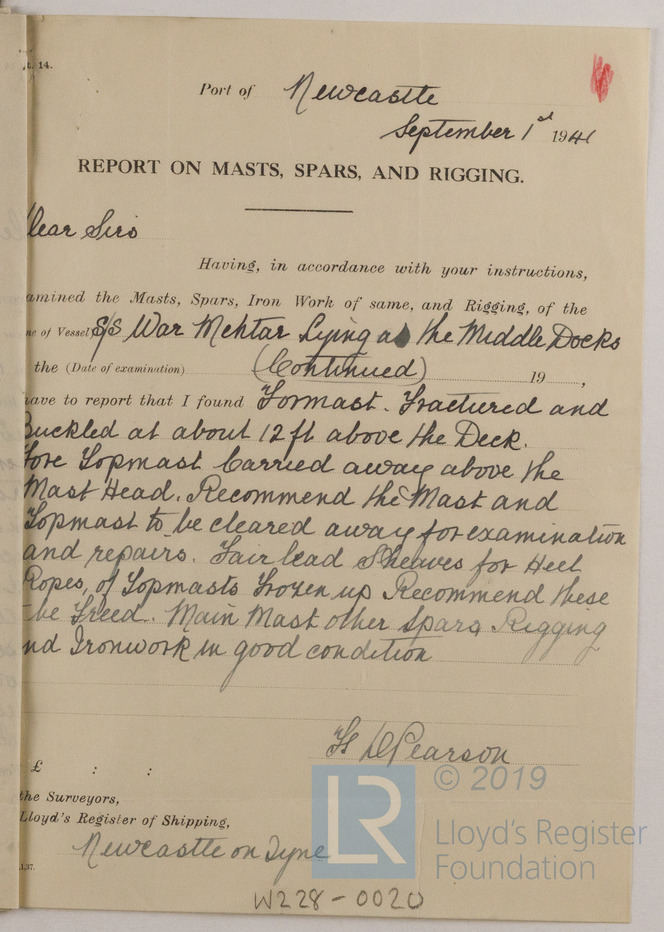 t. 14.
Port of Newcastle
September 1st 1941
REPORT ON MASTS, SPARS, AND RIGGING.
Dear Sirs
Having, in accordance with your instructions,
amined the Masts, Spars, Iron Work of same, and Rigging, of the
me of Vessel S/S War Mehtar Lying at the Middle Docks
the (Date of examination) (Continued) 19 ,
have to report that I found Formast. Fractured and
Buckled at about 12 ft above the Deck.
Fore Topmast Carried away above the
Mast Head. Recommend the Mast and
Topmast to be cleared away for examination
and repairs. Fair lead Sheaves for Heel
Ropes, of Topmasts Frozen up Recommend these
be Freed. Main Mast other Spars Rigging
nd Ironwork in good condition
Pearson
£ : :
the Surveyors,
Lloyd's Register of Shipping,
Newcastle on Tyne
1,37.
W228-0020
LR
© 2019
Lloyd's Register
Foundation